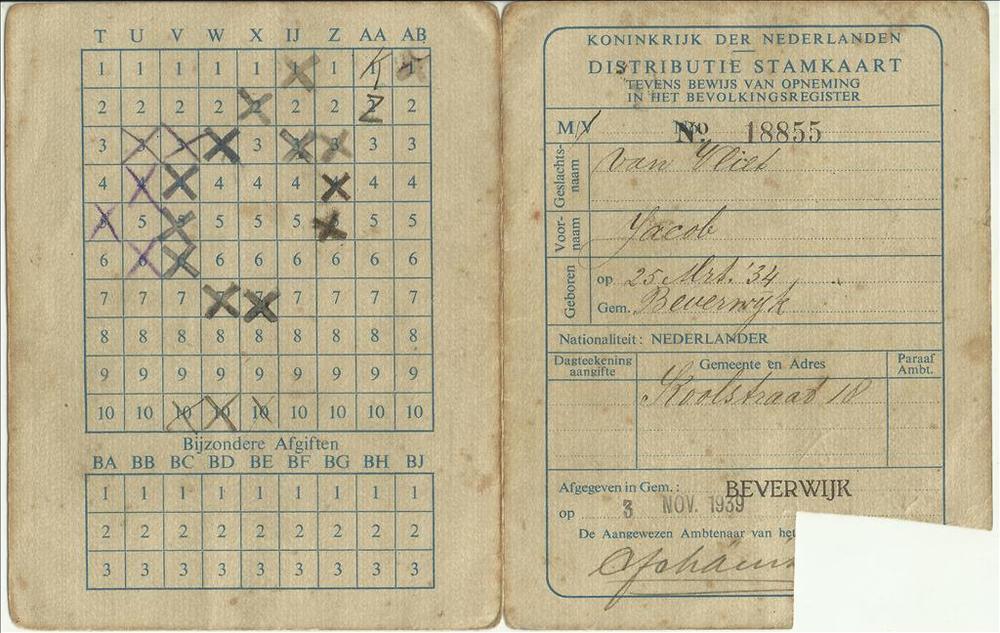 T U V W X IJ Z AA AB
1 1 1 1 1 1 1 1 1
2 2 2 2 2 2 2 2 2
3 3 3 3 3 3 3 3 3
4 4 4 4 4 4 4 4 4
5 5 5 5 5 5 5 5 5
6 6 6 6 6 6 6 6 6
7 7 7 7 7 7 7 7 7
8 8 8 8 8 8 8 8 8
9 9 9 9 9 9 9 9 9
10 10 10 10 10 10 10 10 10
Bijzondere Afgiften
BA BB BC BD BE BF BG BH BJ
1 1 1 1 1 1 1 1 1
2 2 2 2 2 2 2 2 2
3 3 3 3 3 3 3 3 3
KONINKRIJK DER NEDERLANDEN
DISTRIBUTIE STAMKAART
TEVENS BEWIJS VAN OPNEMING
IN HET BEVOLKINGSREGISTER
M/V No. 18855
Geslachts-
naam
van Vliet
Voor-
naam
Jacob
Geboren
op 25 Mrt. '34
Gem. Beverwijk
Nationaliteit: NEDERLANDER
Dagteekening
aangifte
Gemeente en Adres
Paraaf
Ambt.
Koolstraat 18
Afgegeven in Gem.: BEVERWIJK
op 3 NOV. 1939
De Aangewezen Ambtenaar van het